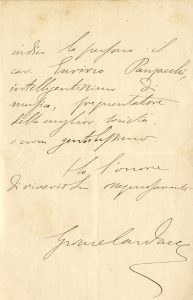 indico la persona: il
cav. Enrico Panzacchi,
intelligentissimo di
musica, frequentatore
della miglior società,
uomo gentilissimo
Ho l'onore
di riverirla ossequiosamente